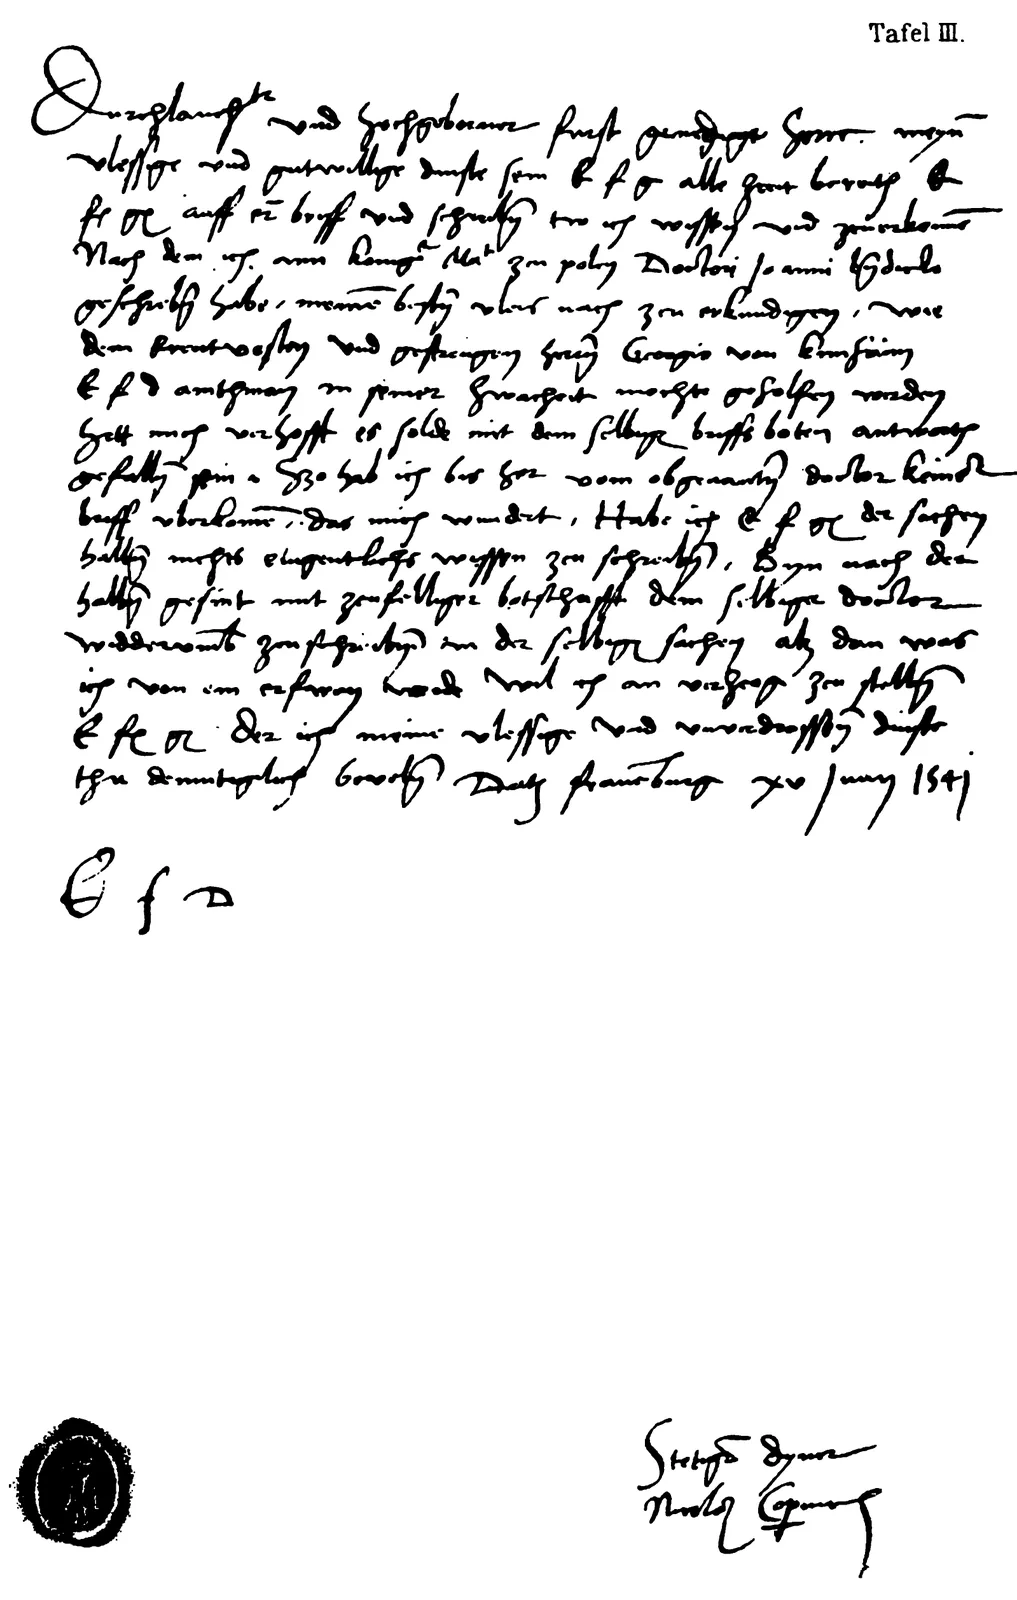 Tafel III.
Durchlauchtr und hochgeborner furst genediger herre. meyn
vlessige und gutwillige dinste sein E f g alle zceit bereith E
f g auff er briff und schreibn tw ich wissen und zcuerkomen
Nach dem ich. ann konigr Mat zcu polen Doctori Joanni Benedicto
geschriebn habe, meinen bestn vleis nach zcu erkundigen, wie
dem Erentvesten und gestrengen herrn Georgio von Kunhaim
E f d amthman in seiner Zwacheit mochte geholfen werden
Hett mich verhofft es solde mit dem selbign briffs boten antworth
gefalln sein. Szo hab ich bis her vom obgenantn doctor keinen
briff uberkomen, das mich wundert, Habe ich E f g der sachen
halbn nichts eingentlichs wissen zcu schreibn, Byn nach der
halbn gesint mit zcufelliger botschafft dem selbigen doctor
widderumb zcuschreibn in der selbign sachen alz dan was
ich von em erfaren werde wil ich an verzcog zcu stelln
E f g Der ich meine vlessige und unverdrossen dinste
thu demutiglich beveln Datum Frauenburg xv Junii 1541
E f D
Stetigr dyner
Nicolaus Copernicus